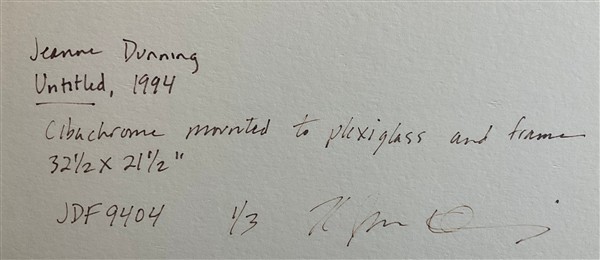 Jeanne Dunning
Untitled, 1994
Cibachrome mounted to plexiglass and frame
32 1/2 x 21 1/2"
JDF9404 1/3